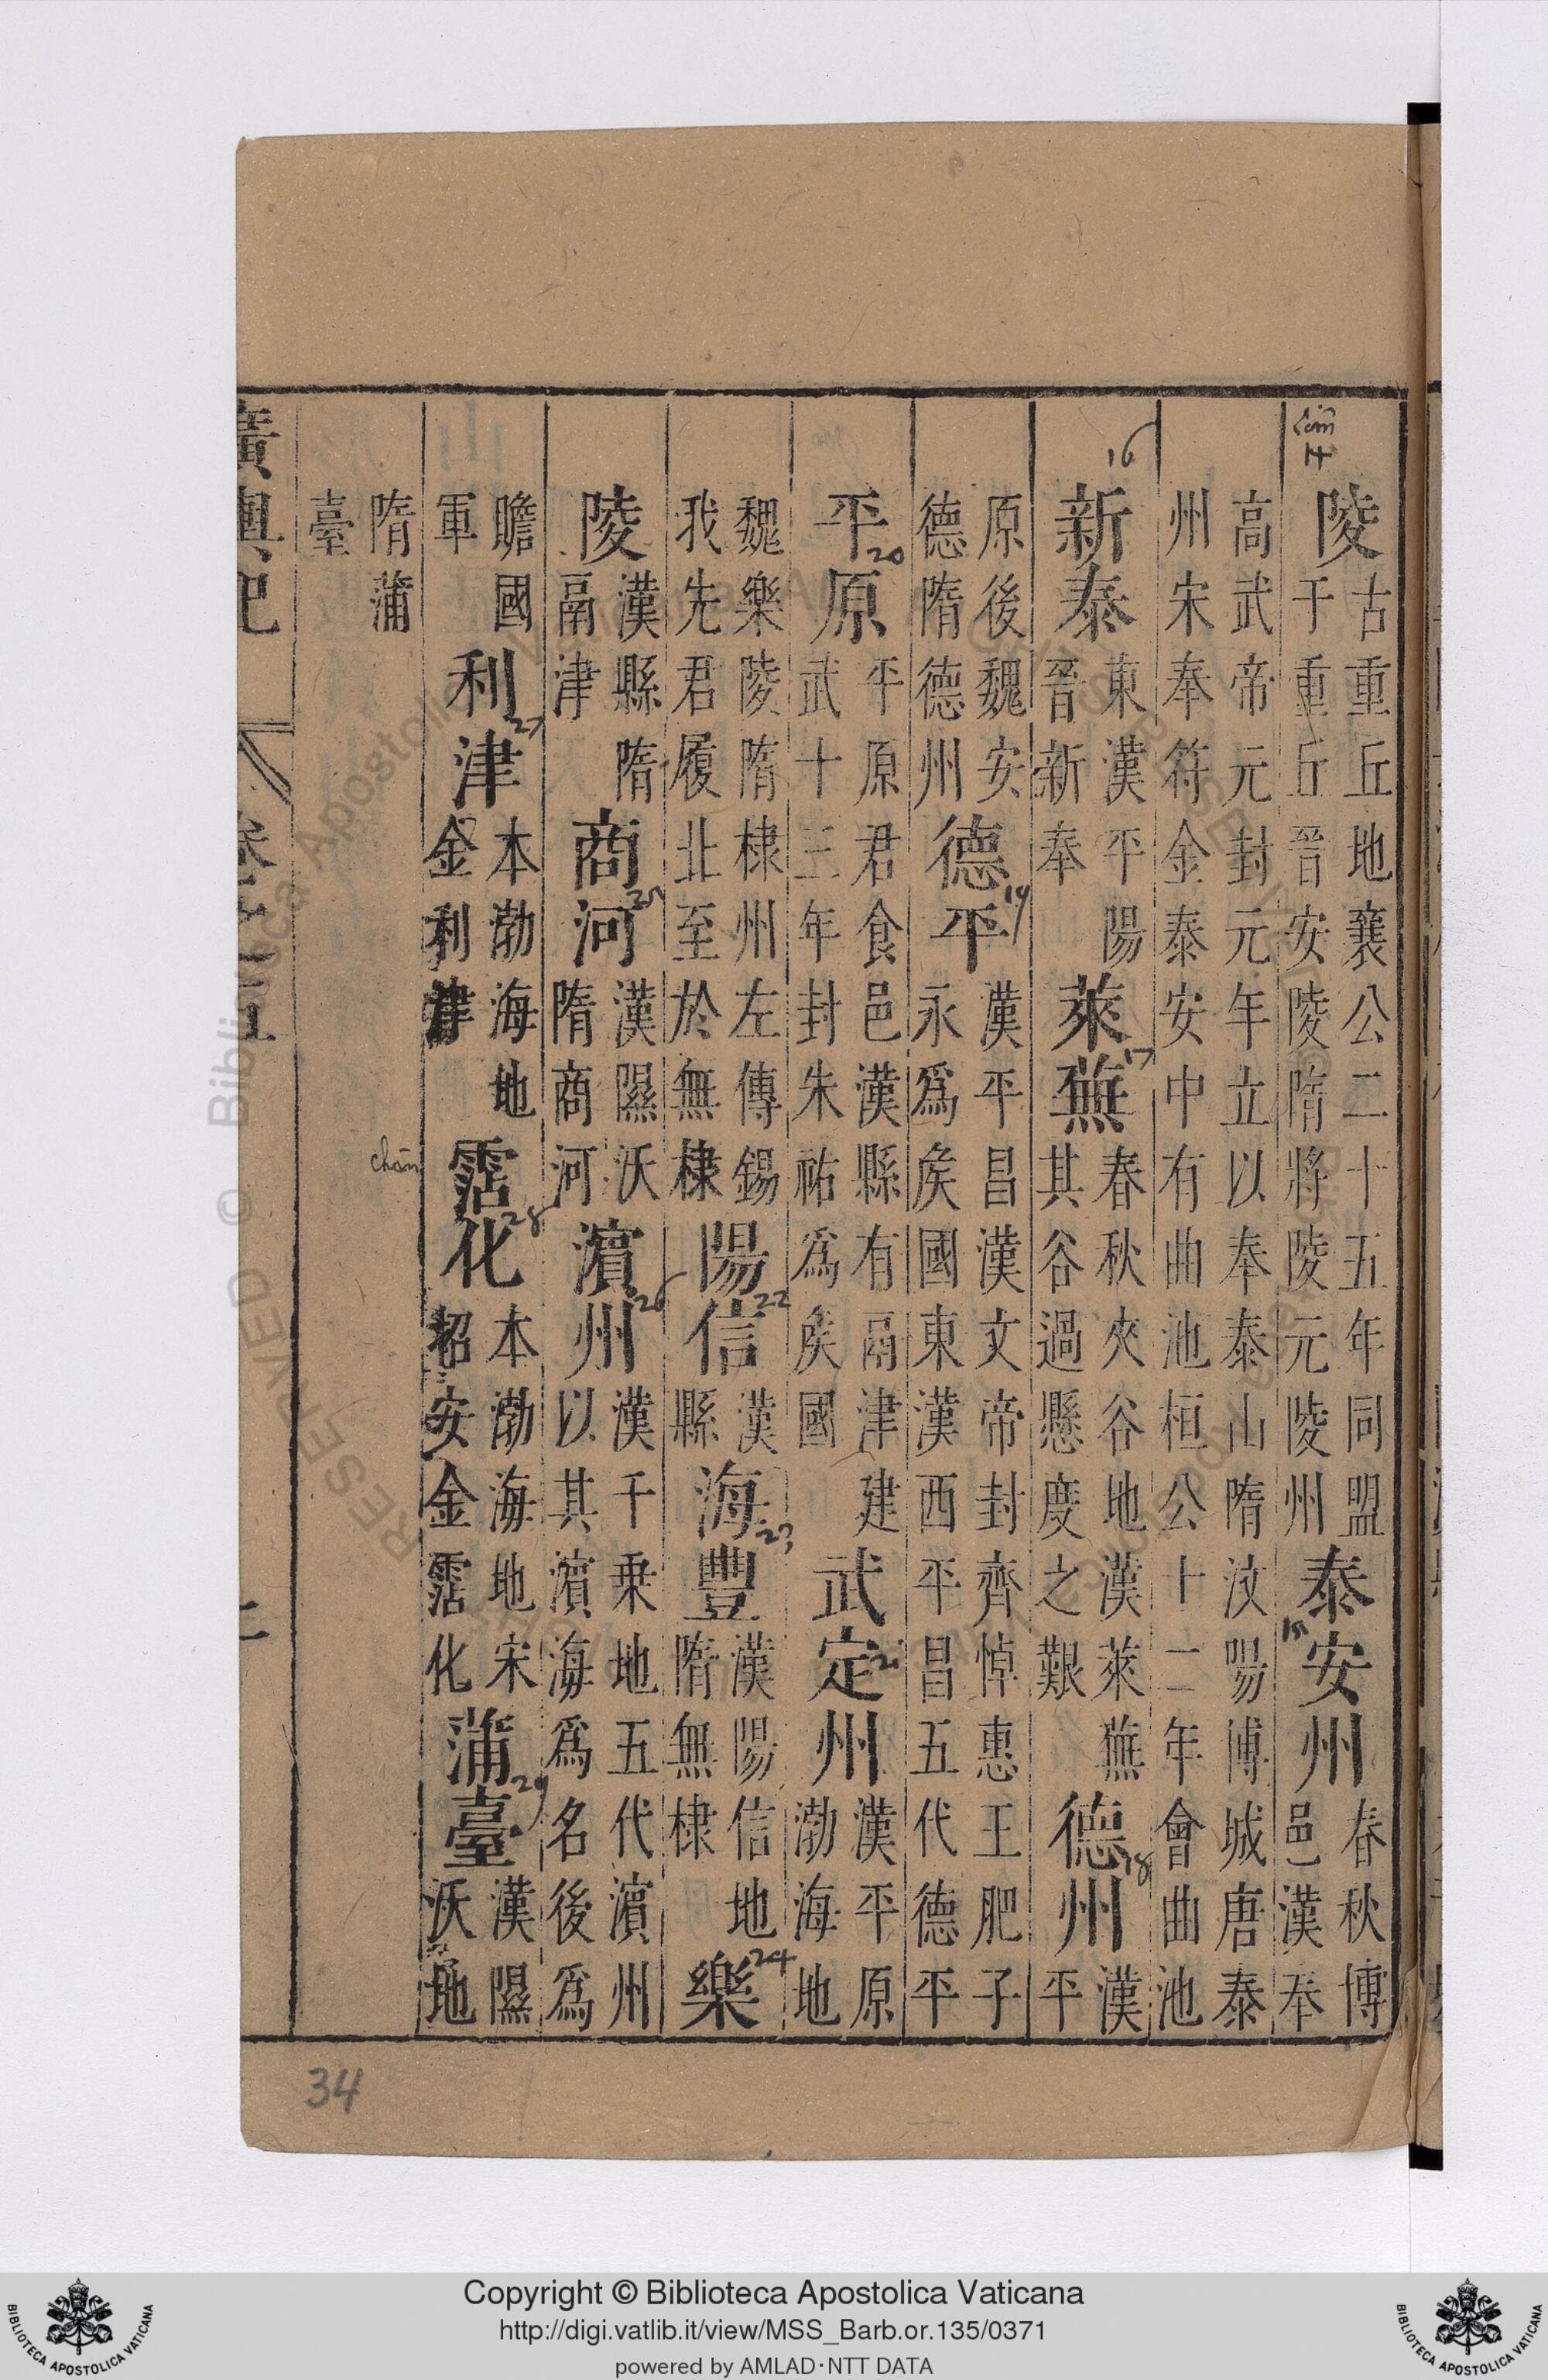 陵古重丘地襄公二十五年同盟于重丘晉安陵隋將陵元陵州泰安州春秋博邑漢奉
高武帝元封元年立以奉泰山隋汶陽博城唐泰州宋奉符金泰安中有曲池桓公十二年會曲池
新泰東漢平陽晉新奉萊蕪春秋夾谷地漢萊蕪其谷過懸度之艱德州漢平
原後魏安德隋德州德平漢平昌漢文帝封齊悼惠王肥子永為矦國東漢西平昌五代德平
平原平原君食邑漢縣有鬲津建武十三年封朱祐為矦國武定州漢平原渤海地
魏樂陵隋棣州左傳錫我先君履北至於無棣陽信漢縣海豐漢陽信地隋無棣樂
陵漢縣隋鬲津商河漢隰沃隋商河濱州漢千乗地五代濱州以其濱海為名後為
贍國軍利津本渤海地金利津霑化本渤海地宋招安金霑化蒲臺漢隰沃地
隋蒲臺
廣輿記
二
16
15
17
18
19
20
22
23
24
25
26
27
28
29
chān
34
RESERVED © Biblioteca Apostolica Vaticana
Copyright © Biblioteca Apostolica Vaticana
http://digi.vatlib.it/view/MSS_Barb.or.135/0371
powered by AMLAD·NTT DATA
BIBLIOTECA APOSTOLICA VATICANA
BIBLIOTECA APOSTOLICA VATICANA